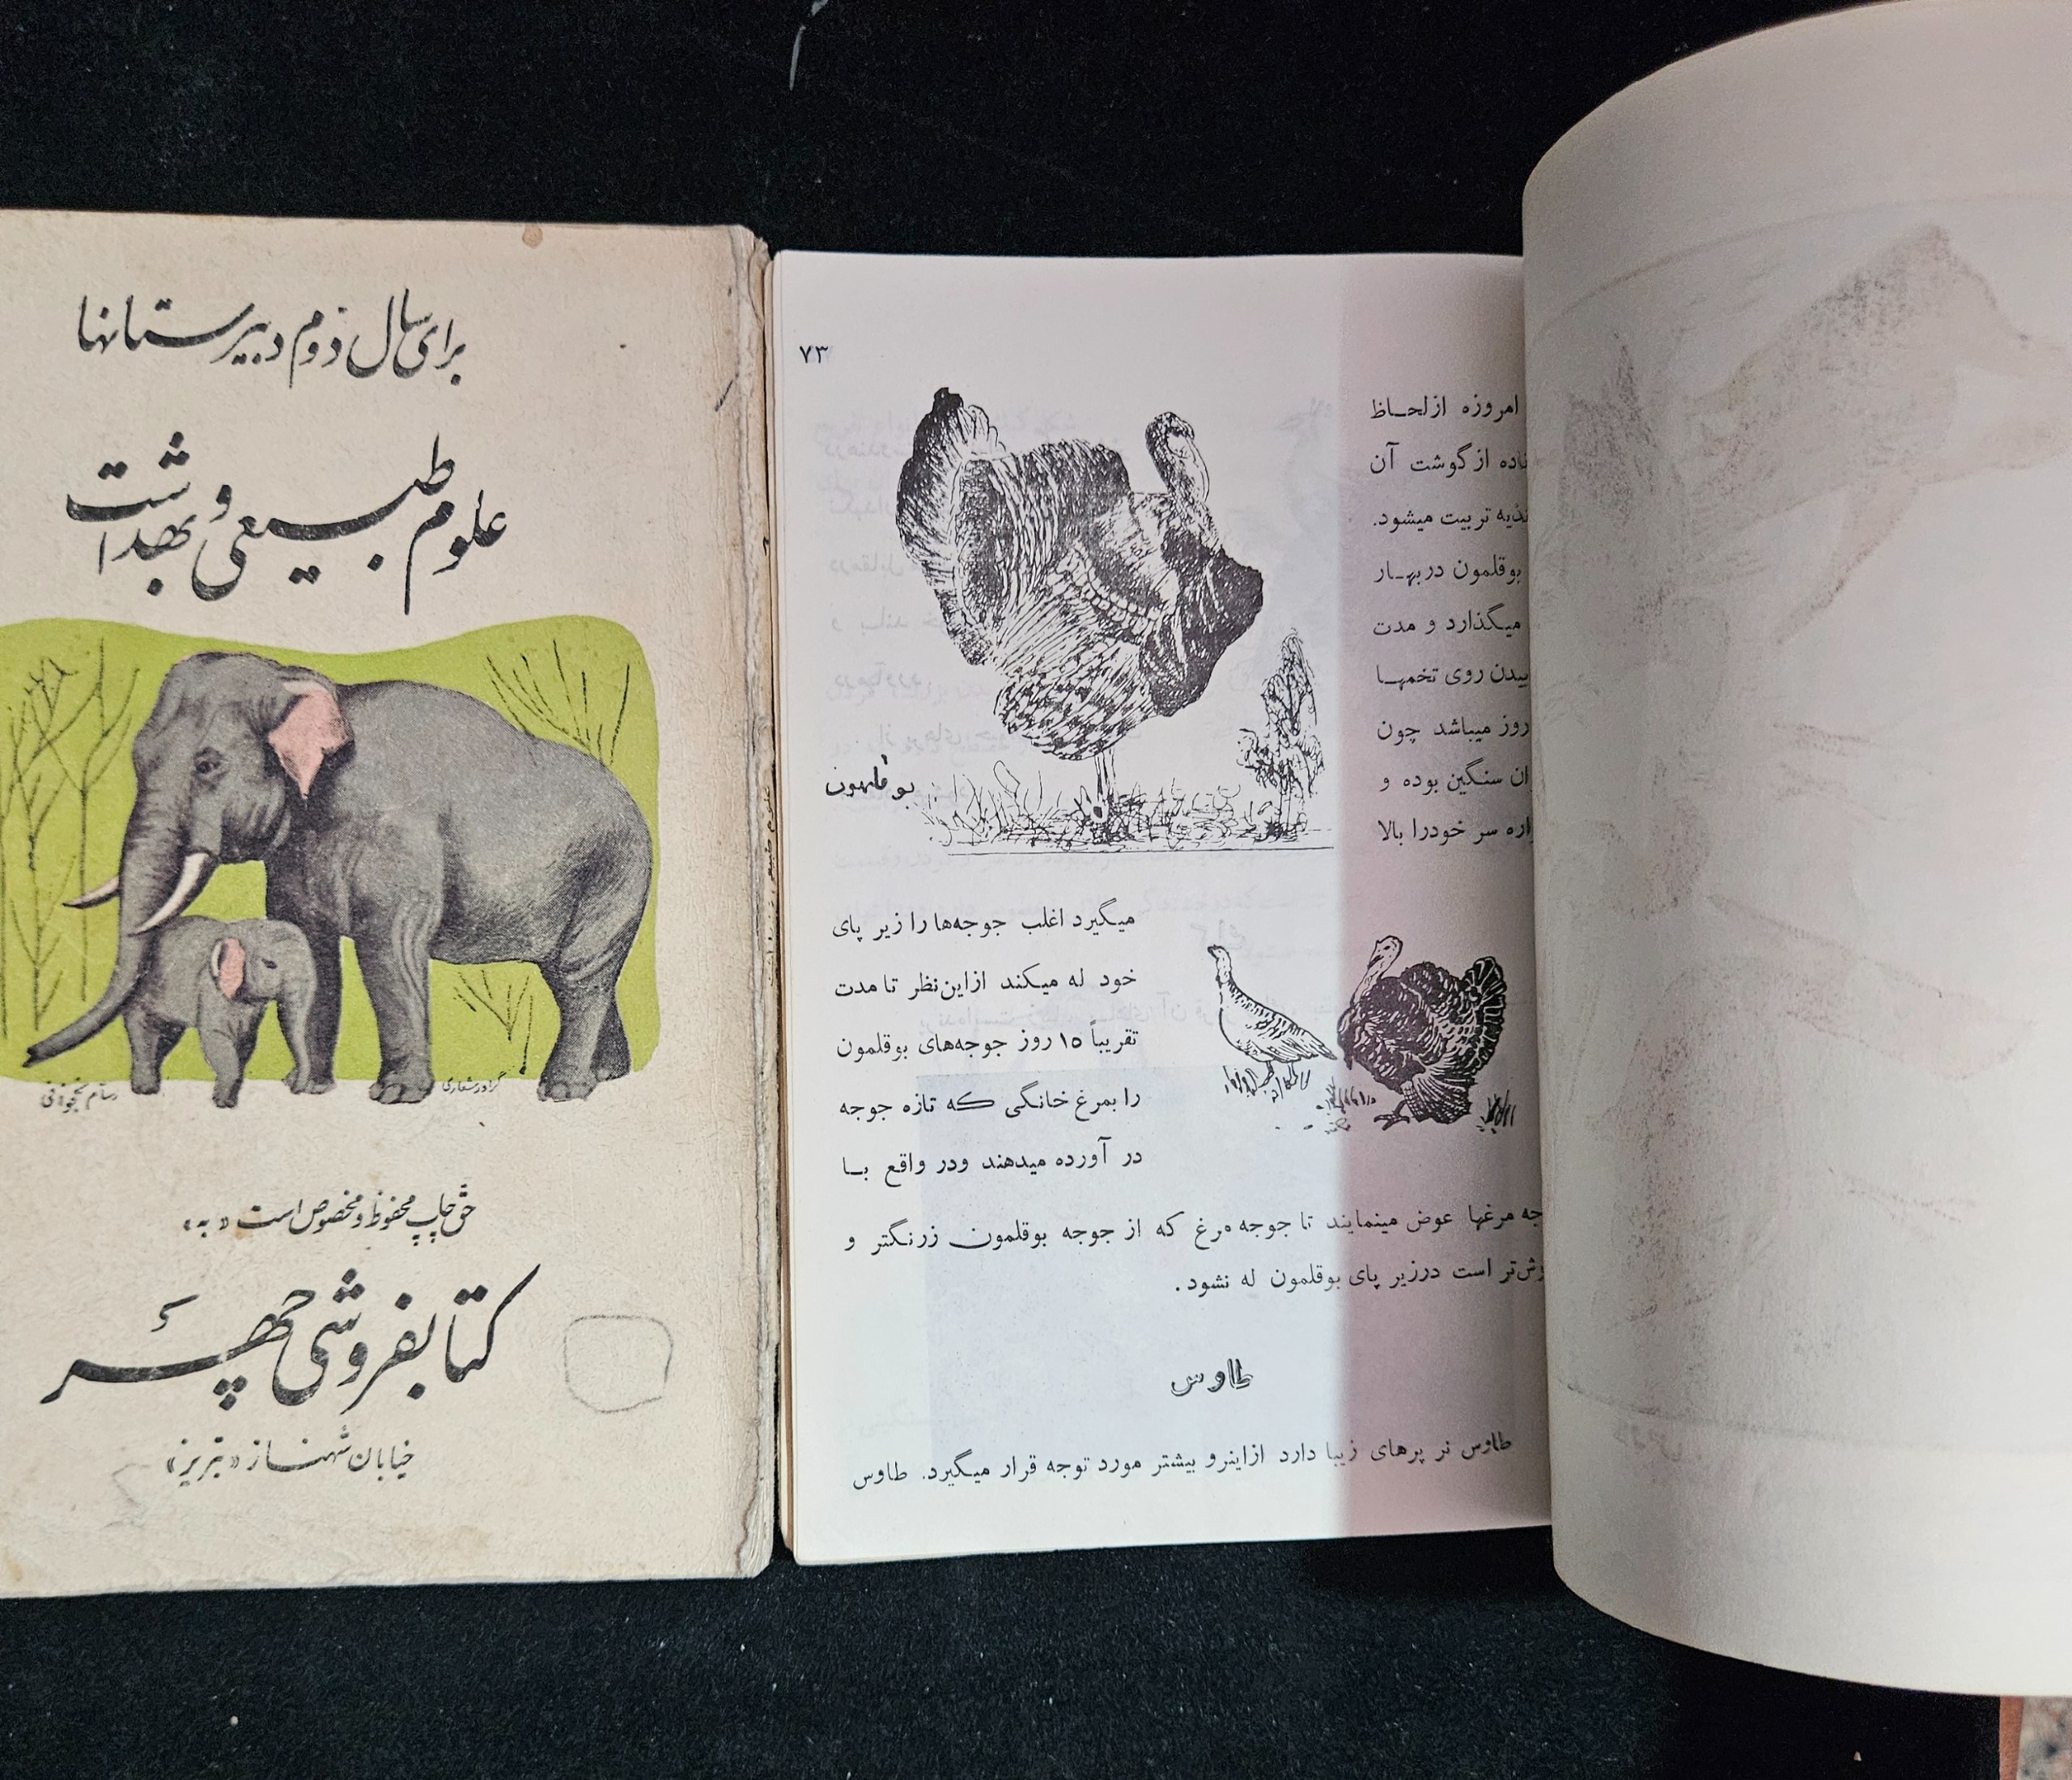 برای سال دوم دبیرستانها
علوم طبیعی و بهداشت
رسام نخجوانی
گراور شعاری
حق چاپ محفوظ و مخصوص است «به»
کتابفروشی چهر
خیابان شهناز «تبریز»
۷۳
امروزه ازلحاظ
از گوشت آن
تربیت میشود.
بوقلمون دربهار
میگذارد و مدت
روی تخمها
روز میباشد چون
سنگین بوده و
سر خودرا بالا
بوقلمون
میگیرد اغلب جوجه‌ها را زیر پای
خود له میکند ازاین‌نظر تا مدت
تقریباً ۱۵ روز جوجه‌های بوقلمون
را بمرغ خانگی که تازه جوجه
در آورده میدهند ودر واقع با
مرغها عوض مینمایند تا جوجه مرغ که از جوجه بوقلمون زرنگتر و
است درزیر پای بوقلمون له نشود.
طاوس
طاوس نر پرهای زیبا دارد ازاینرو بیشتر مورد توجه قرار میگیرد. طاوس